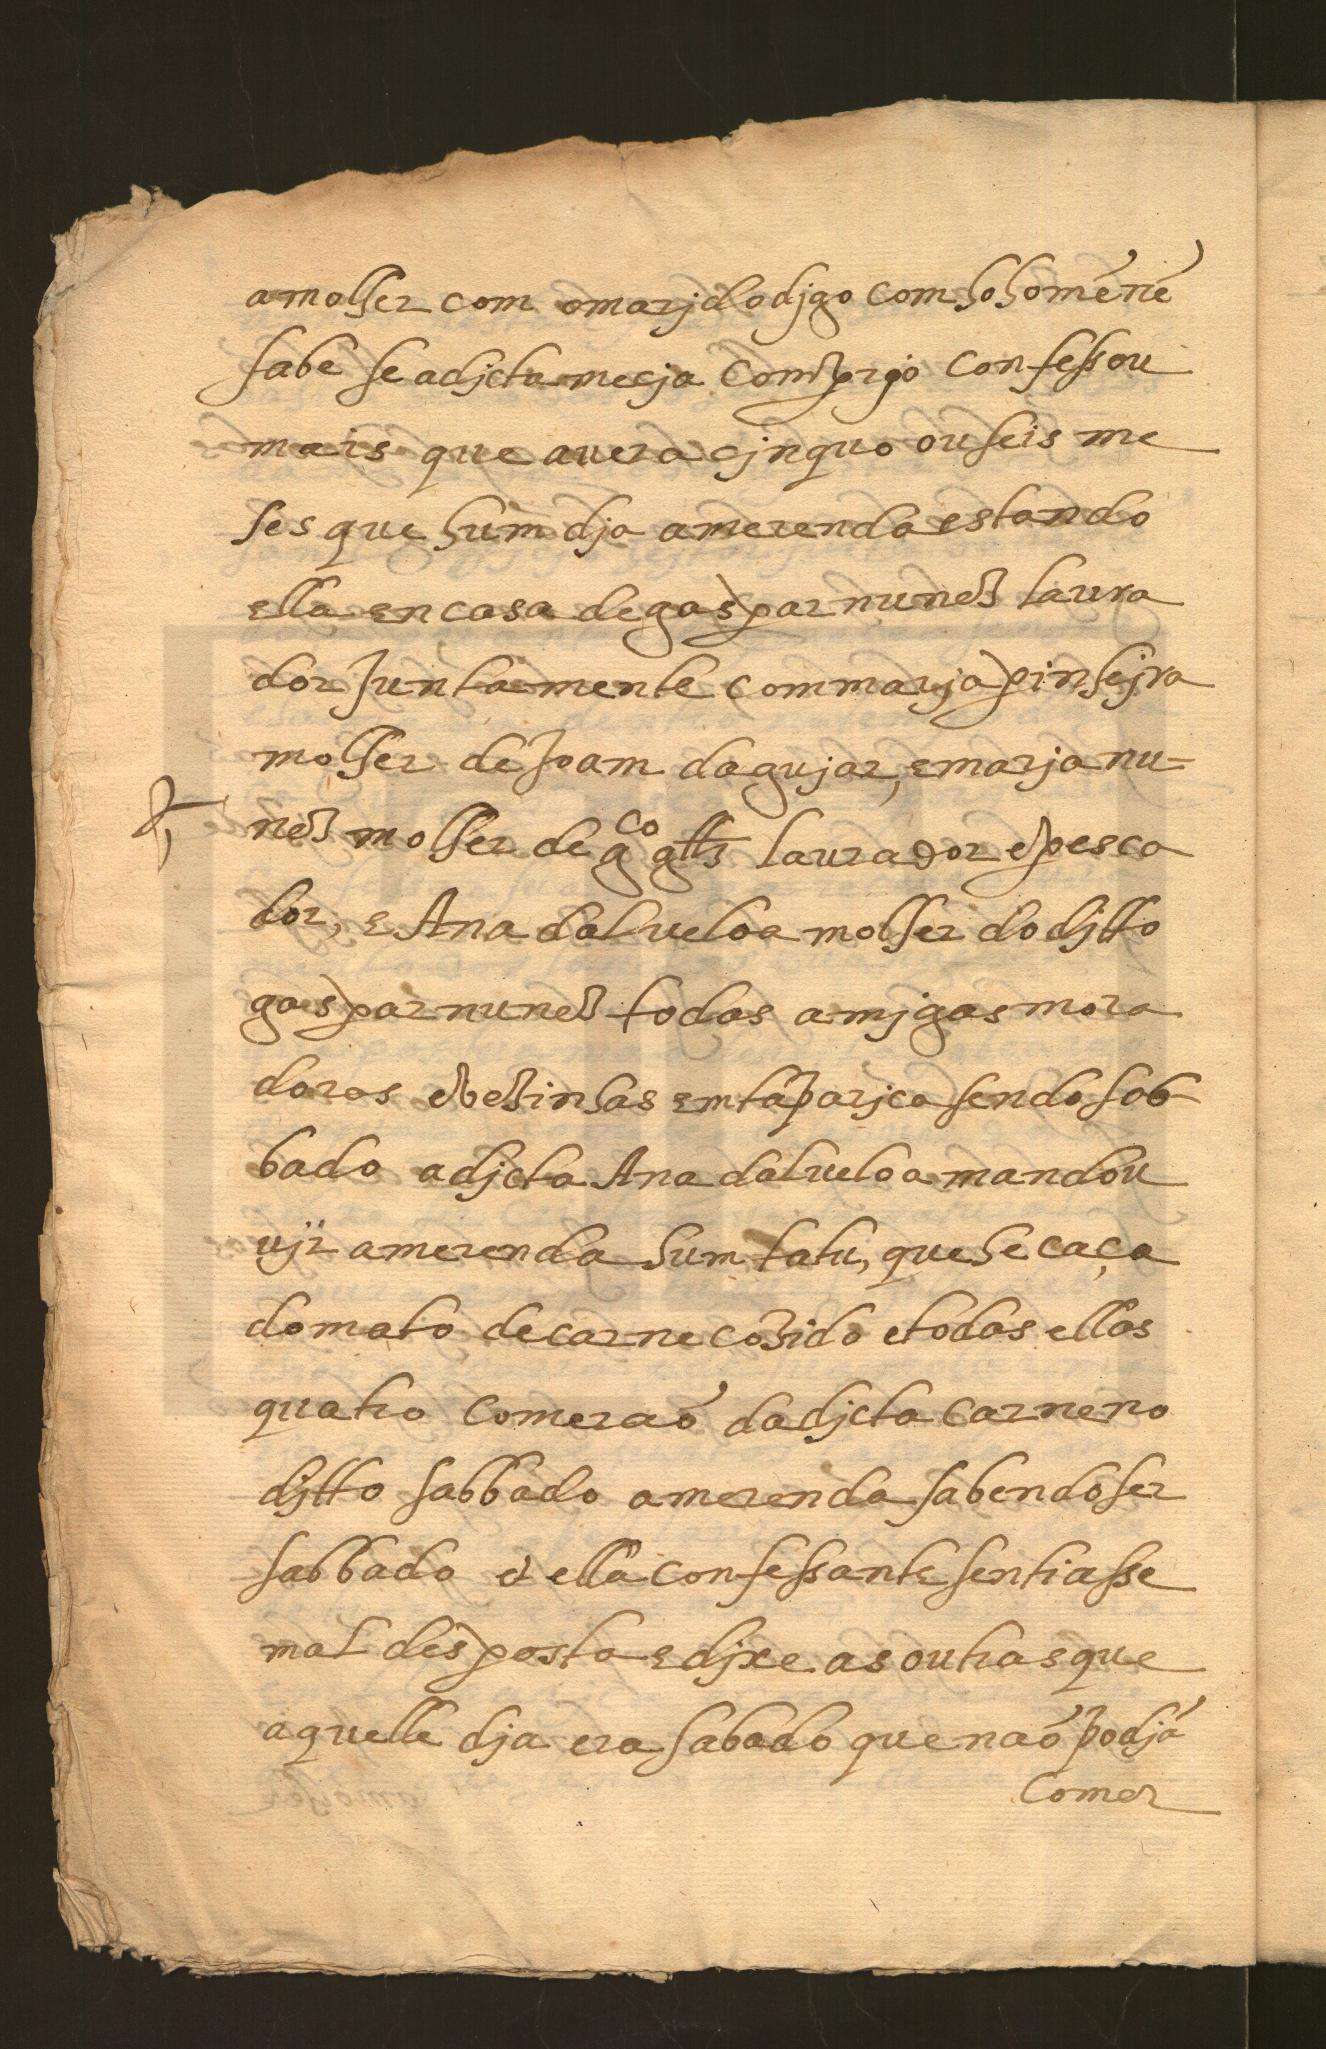 a molher com o marjdo djgo com ho homẽ nẽ
sabe se a djcta mecja comprjo confessou
mais que avera cjnquo ou seis me
ses que hum dja a merenda estando
ella en casa de gaspar nunez lavra
dor juntamente com marja pinhejra
molher de joam dagujar, e marja nu=
nez molher de g.co glz lavrador e pesca
dor, e Ana dalveloa molher do djtto
gaspar nunez todas amjgas mora
doras e vezinhas em taparjca sendo sab
bado a djcta Ana dalveloa mandou
vjr a merenda hum tatu, que he caça
do mato de carne cozido e todas ellas
quatro comeraõ da djcta carne no
djtto sabbado a merenda sabendo ser
sabbado e ella confessante sentiasse
mal desposta e djxe as outras que
aquelle dja era sabado que naõ podjã
Comer